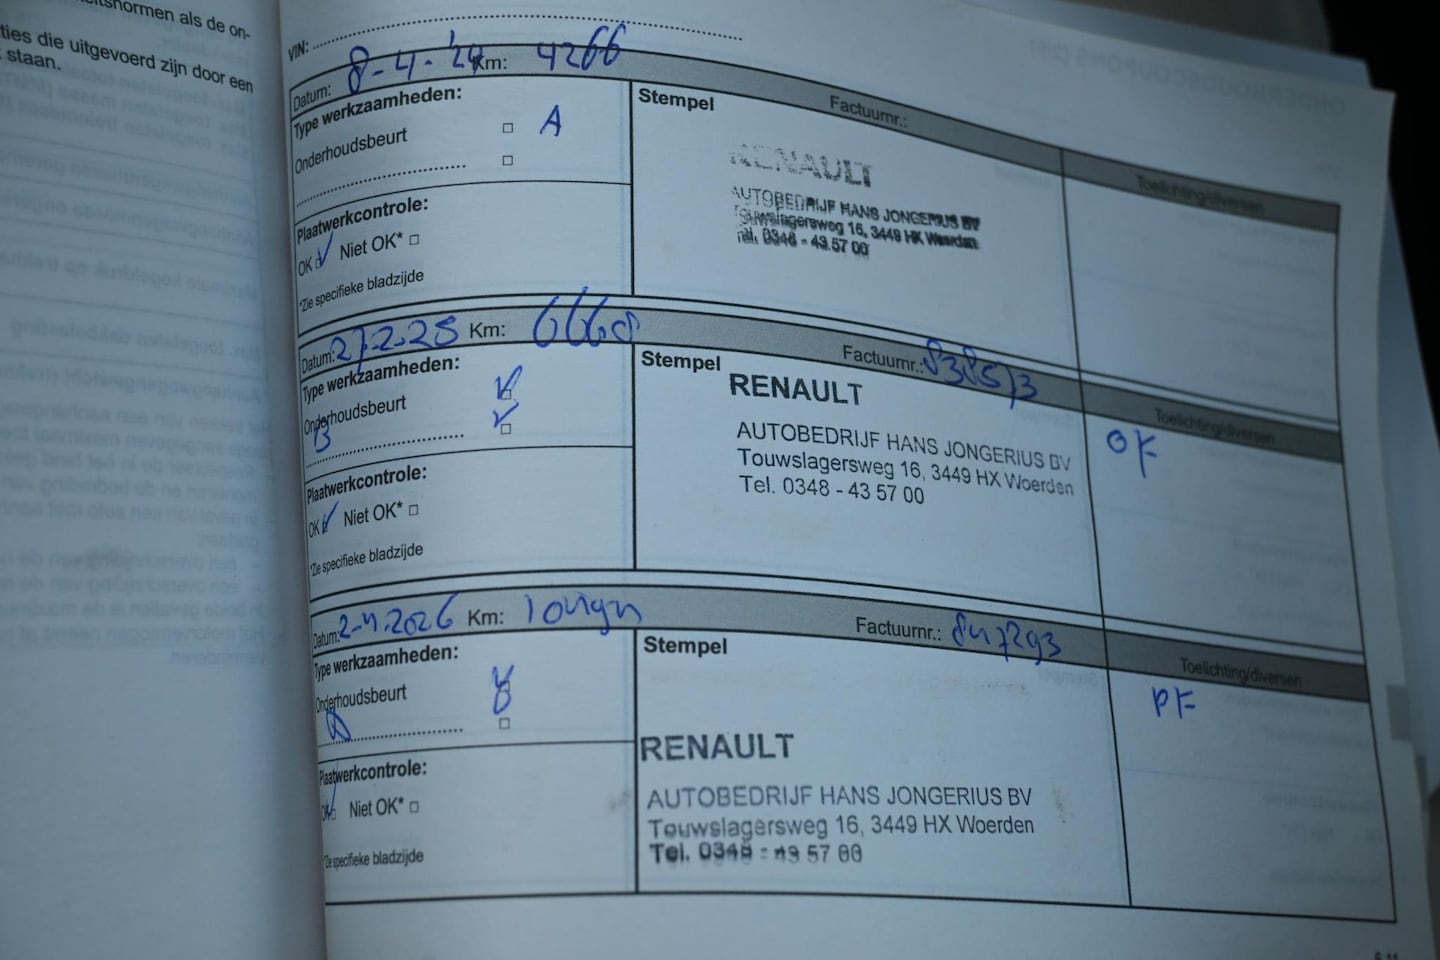 eitsnormen als de on-
ties die uitgevoerd zijn door een
staan.
VIN:
Datum: 8-4-'24 Km: 4266 Factuurnr.: Toelichting/diversen
Type werkzaamheden: Stempel
Onderhoudsbeurt □ A
□
RENAULT
AUTOBEDRIJF HANS JONGERIUS BV
Touwslagersweg 16, 3449 HX Woerden
Tel. 0348 - 43 57 00
Plaatwerkcontrole:
OK □ Niet OK* □
*Zie specifieke bladzijde
Datum: 27-2-25 Km: 6668 Factuurnr.: 838573 Toelichting/diversen
Type werkzaamheden: Stempel
Onderhoudsbeurt □
B
□
RENAULT
AUTOBEDRIJF HANS JONGERIUS BV
Touwslagersweg 16, 3449 HX Woerden
Tel. 0348 - 43 57 00
OF
Plaatwerkcontrole:
OK □ Niet OK* □
*Zie specifieke bladzijde
Datum: 2-4-2026 Km: Factuurnr.: 847293 Toelichting/diversen
Type werkzaamheden: Stempel
Onderhoudsbeurt □
□
PF
RENAULT
AUTOBEDRIJF HANS JONGERIUS BV
Touwslagersweg 16, 3449 HX Woerden
Tel. 0348 - 43 57 00
Plaatwerkcontrole:
OK □ Niet OK* □
*Zie specifieke bladzijde